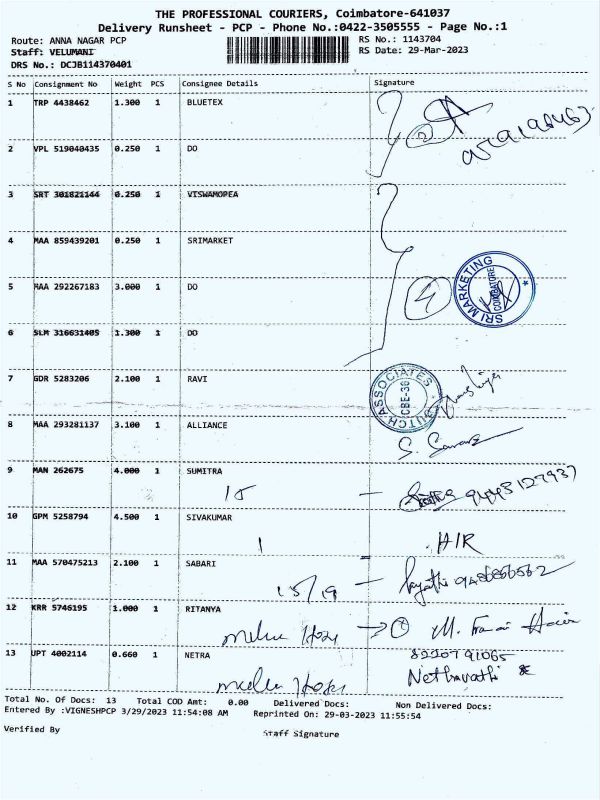 THE PROFESSIONAL COURIERS, Coimbatore-641037
Delivery Runsheet - PCP - Phone No.:0422-3505555 - Page No.:1
Route: ANNA NAGAR PCP RS No.: 1143704
Staff: VELUMANI RS Date: 29-Mar-2023
DRS No.: DCJB114370401
S No Consignment No Weight PCS Consignee Details Signature
1 TRP 4438462 1.300 1 BLUETEX
2
2 VPL 519040435 0.250 1 DO
3 SRT 301821144 0.250 1 VISWAMOPEA
4 MAA 859439201 0.250 1 SRIMARKET
SRI MARKETING COIMBATORE
5 MAA 292267183 3.000 1 DO 4
6 SLM 316631405 1.300 1 DO
7 GDR 5283206 2.100 1 RAVI
DUTCH ASSOCIATES CBE-36
8 MAA 293281137 3.100 1 ALLIANCE
9 MAN 262675 4.000 1 SUMITRA
15 - 9445127937
10 GPM 5258794 4.500 1 SIVAKUMAR
1 AIR
11 MAA 570475213 2.100 1 SABARI
15/19 -
12 KRR 5746195 1.000 1 RITANYA
13 UPT 4002114 0.660 1 NETRA 8220791065
Nethravathi
Total No. Of Docs: 13 Total COD Amt: 0.00 Delivered Docs: Non Delivered Docs:
Entered By :VIGNESHPCP 3/29/2023 11:54:08 AM Reprinted On: 29-03-2023 11:55:54
Verified By Staff Signature